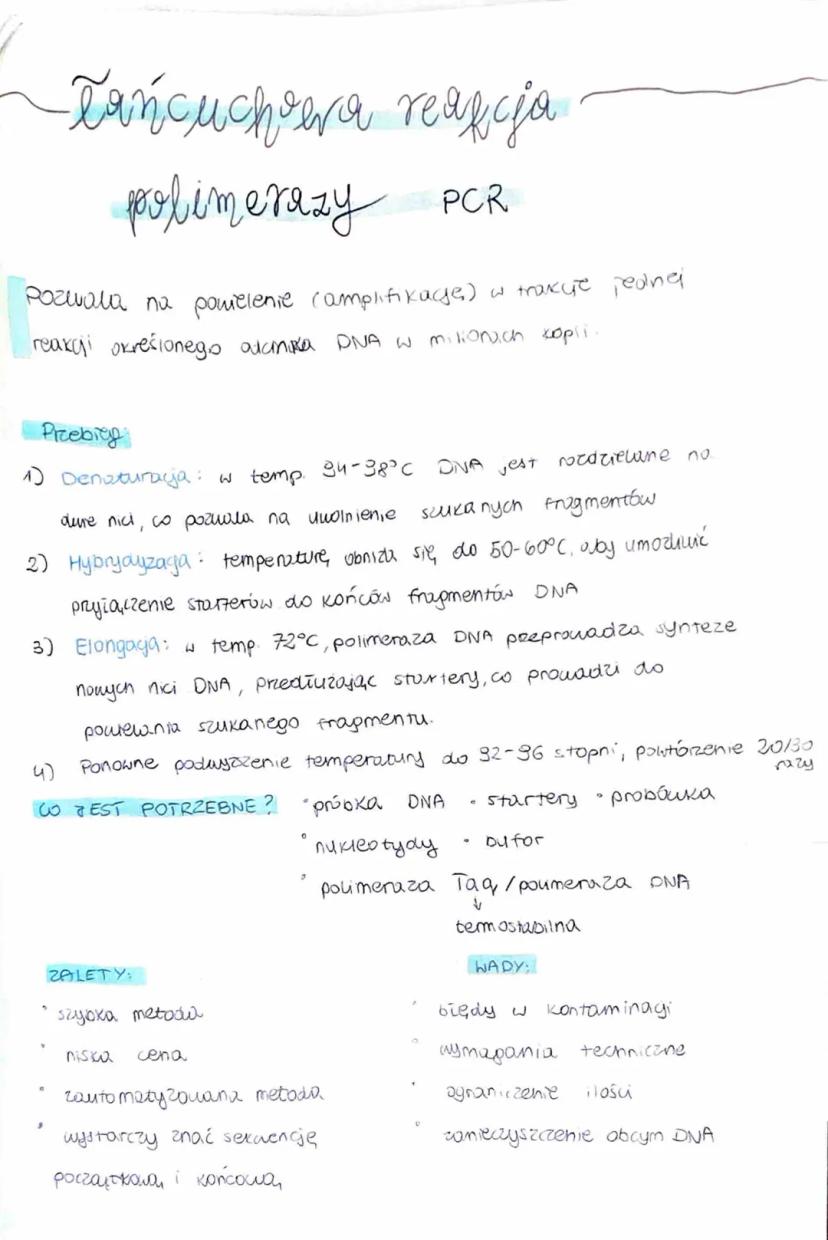 Łańcuchowa reakcja
polimerazy PCR
Pozwala na powielenie (amplifikację) w trakcie jednej
reakcji określonego odcinka DNA w milionach kopii.
Przebieg:
1) Denaturacja: w temp. 94-98°C DNA jest rozdzielane na
dwie nici, co pozwala na uwolnienie szukanych fragmentów
2) Hybrydyzacja: temperaturę obniża się do 50-60°C, aby umożliwić
przyłączenie starterów do końców fragmentów DNA
3) Elongacja: w temp. 72°C, polimeraza DNA przeprowadza syntezę
nowych nici DNA, przedłużając startery, co prowadzi do
powielenia szukanego fragmentu.
4) Ponowne podwyższenie temperatury do 92-96 stopni, powtórzenie 20/30
razy
CO JEST POTRZEBNE? • próbka DNA • startery • probówka
• nukleotydy • bufor
• polimeraza Taq / polimeraza DNA
↓
termostabilna
ZALETY: WADY:
• szybka metoda • błędy w kontaminacji
• niska cena • wymagania techniczne
• zautomatyzowana metoda • ograniczenie ilości
• wystarczy znać sekwencję • zanieczyszczenie obcym DNA
początkową i końcową